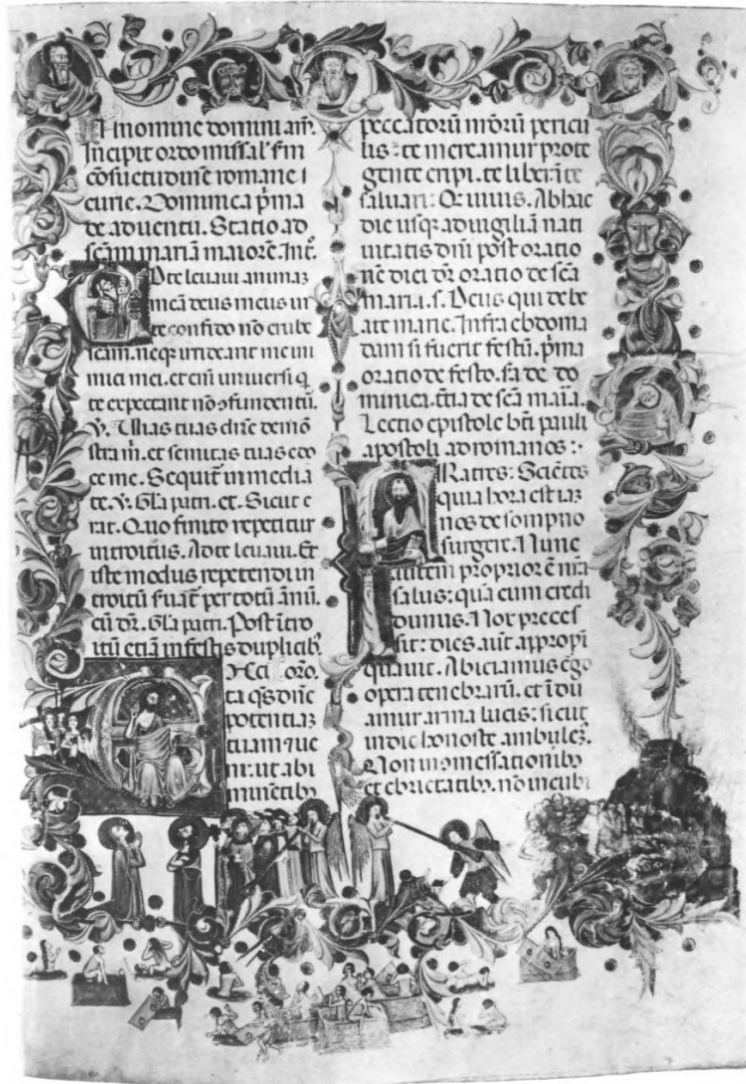 In nomine domini am̄.
Incipit ordo missal' fm
cōsuetudinē romane
curie. Dominica p̄ma
de aduentu. Statio ad
scām mariā maiorē. Int̄.
Ad te leuaui animaz
meā deus meus in
te confido nō erube
scam. neqꝫ irrideant me ini
mici mei. et eni uniuersi q̄
te expectant nō ꝯfundentū.
℣. Uias tuas dn̄e demō
stra m̄. et semitas tuas edo
ce me. Sequit̄ inmedia
te. ℣. Gla patri. et. Sicut e
rat. Quo finito repetitur
introitus. Ad te leuaui. Et
iste modus repetendi in
troitū seruat̄ per totū anū.
cū dr̄. Gla patri. Post ītro
itū etiā in festis duplicib.
Exci oro.
ta q̄s dn̄e
potentiaz
tuam ⁊ ue
ni: ut abi
minētibꝫ
peccatorū nr̄orū pericu
lis: te mereamur prote
gente eripi. te liberāte
saluari: Qui uiuis. Ab hac
die usqꝫ ad uigiliā nati
uitatis dn̄i post oratio
nē diei dr̄ oratio de scā
maria. s. Deus qui de be
ate marie. Infra ebdoma
dam si fuerit festū. p̄ma
oratio de festo. sa de do
minica. t̄tia de scā maria.
Lectio epistole bt̄i pauli
apostoli ad romanos:
FRatres: Sciētes
quia hora est iaz
nos de sompno
surgere. Nunc
autem propior ē nr̄a
salus: quā cum credi
dimus. Nox preces
sit: dies aut̄ appropi
quauit. Abiciamus ego
opera tenebrarū. et īdu
amur arma lucis: sicut
in die honeste ambulez.
Non in comessationibꝫ
et ebrietatibꝫ. nō in cubi